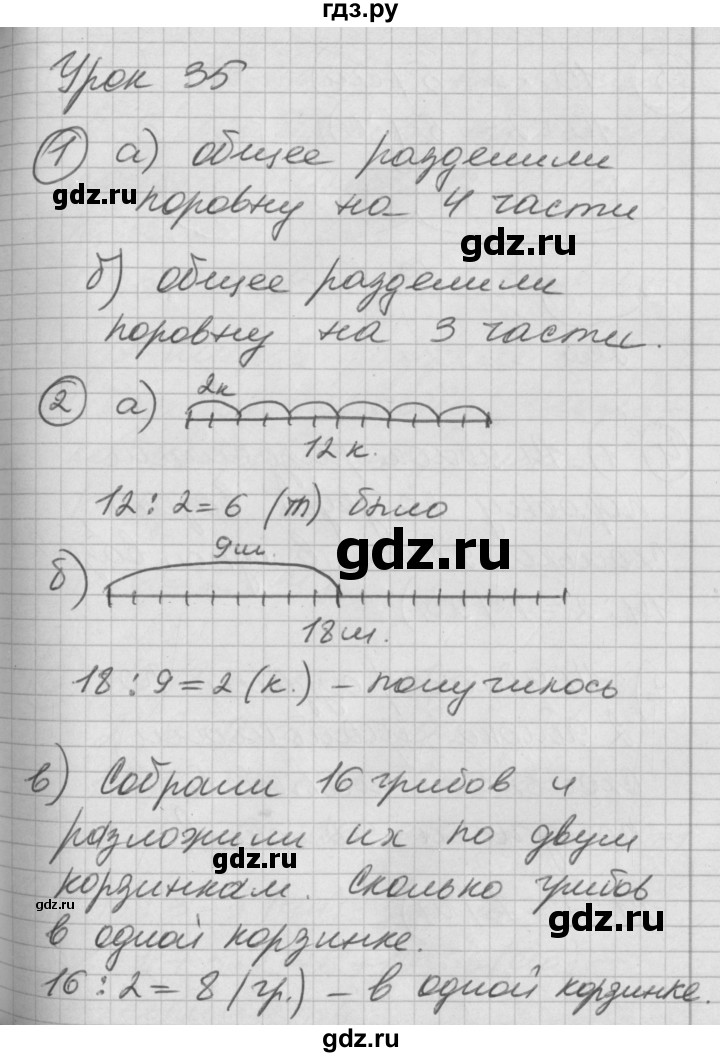 гдз.ру
Урок 35
1 а) общее разделили
gdz.ru
поровну на 4 части
gdz.ru
б) общее разделили
поровну на 3 части.
2 а) 2к
12 к.
12 : 2 = 6 (т) было
gdz.ru
б) 9ш.
18 ш.
18 : 9 = 2 (к.) – получилось
в) Собрали 16 грибов и
разложили их по двум
gdz.ru gdz.ru
корзинкам. Сколько грибов
gdz.ru
в одной корзинке.
gdz.ru
16 : 2 = 8 (гр.) – в одной корзинке.
gdz.ru